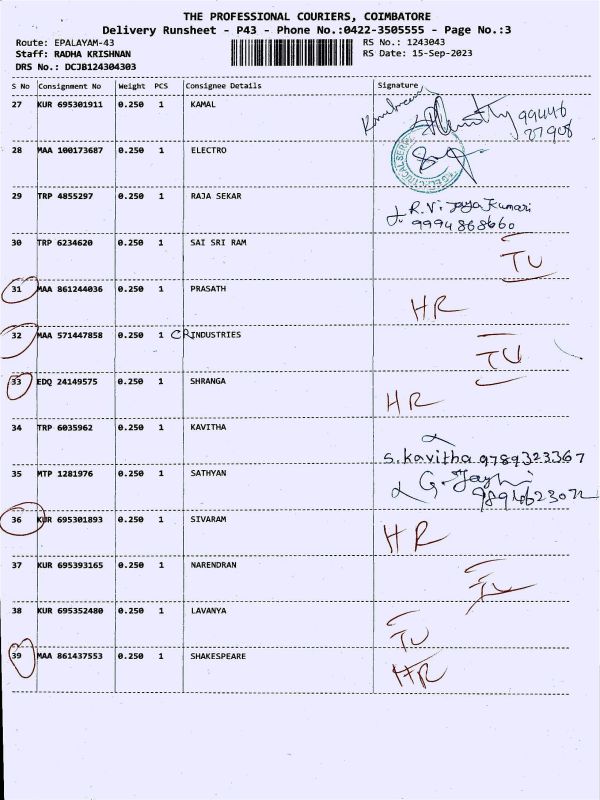 THE PROFESSIONAL COURIERS, COIMBATORE
Delivery Runsheet - P43 - Phone No.:0422-3505555 - Page No.:3
Route: EPALAYAM-43 RS No.: 1243043
Staff: RADHA KRISHNAN RS Date: 15-Sep-2023
DRS No.: DCJB124304303
S No Consignment No Weight PCS Consignee Details Signature
27 KUR 695301911 0.250 1 KAMAL 99446
27908
28 MAA 100173687 0.250 1 ELECTRO
29 TRP 4855297 0.250 1 RAJA SEKAR R.V. Jaya Kumari
9994868660
30 TRP 6234620 0.250 1 SAI SRI RAM TU
31 MAA 861244036 0.250 1 PRASATH HR
32 MAA 571447858 0.250 1 CRINDUSTRIES TU
33 EDQ 24149575 0.250 1 SHRANGA HR
34 TRP 6035962 0.250 1 KAVITHA S.Kavitha 9789323367
35 MTP 1281976 0.250 1 SATHYAN G.
36 KUR 695301893 0.250 1 SIVARAM HR
37 KUR 695393165 0.250 1 NARENDRAN TU
38 KUR 695352480 0.250 1 LAVANYA TU
39 MAA 861437553 0.250 1 SHAKESPEARE HR